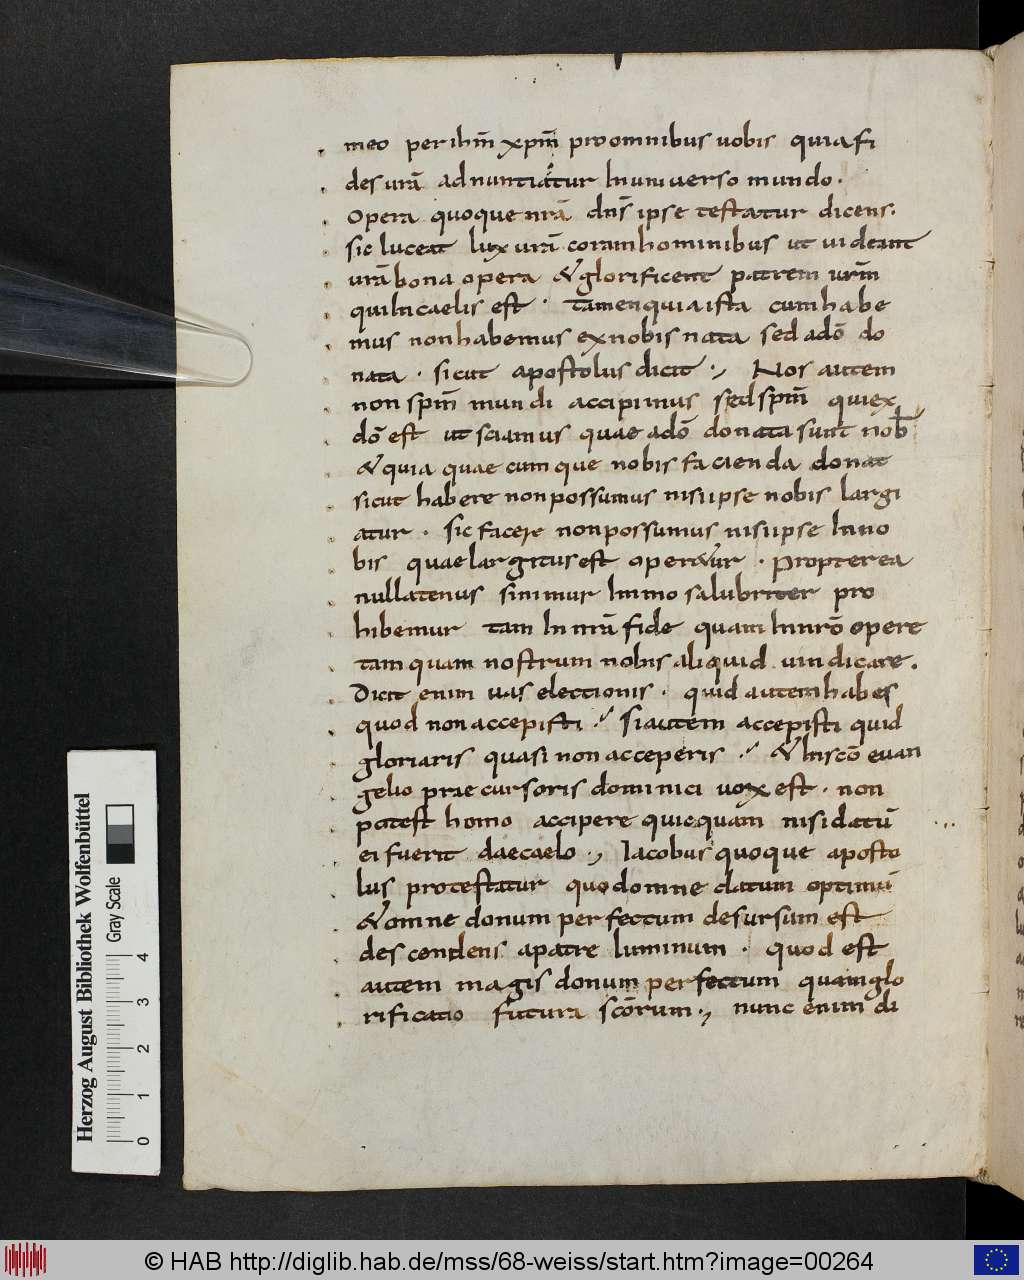 meo per ihm̄ xpm̄ pro omnibus uobis quia fi
des urā adnuntiatur In uniuerso mundo.
Opera quoque nrā dnS̄ ipse testatur dicens.
sic luceat lux urā coram hominibus ut uideant
urā bona opera & glorificent patrem urm̄
qui In caelis est · tamen quia ista cum habe
mus non habemus ex nobis nata sed a dō do
nata · sicut apostolus dicit ., Nos autem
non spm̄ mundi accipimus sed spm̄ qui ex
dō est ut sciamus quae a dō donata sunt nob̄
& quia quaecumque nobis facienda donat
sicut habere non possumus nisi ipse nobis largi
atur · sic facere non possumus nisi ipse In no
bis quae largitus est oper&ur · Propterea
nullatenus sinimur Immo salubriter pro
hibemur tam In nrā fide quam In nrō opere
tamquam nostrum nobis aliquid uindicare.
Dicit enim uas electionis · quid autem habes
quod non accepisti ./ si autem accepisti quid
gloriaris quasi non acceperis ./ & In scō euan
gelio praecursoris dominici uox est · non
potest homo accipere quicquam nisi datū
ei fuerit dae caelo ., Iacobus quoque aposto
lus protestatur quod omne datum optimū
& omne donum perfectum desursum est
descendens a patre luminum · quod est
autem magis donum perfectum quam glo
rificatio futura scōrum ., nunc enim di
Herzog August Bibliothek Wolfenbüttel
Gray Scale
0 1 2 3 4
© HAB http://diglib.hab.de/mss/68-weiss/start.htm?image=00264